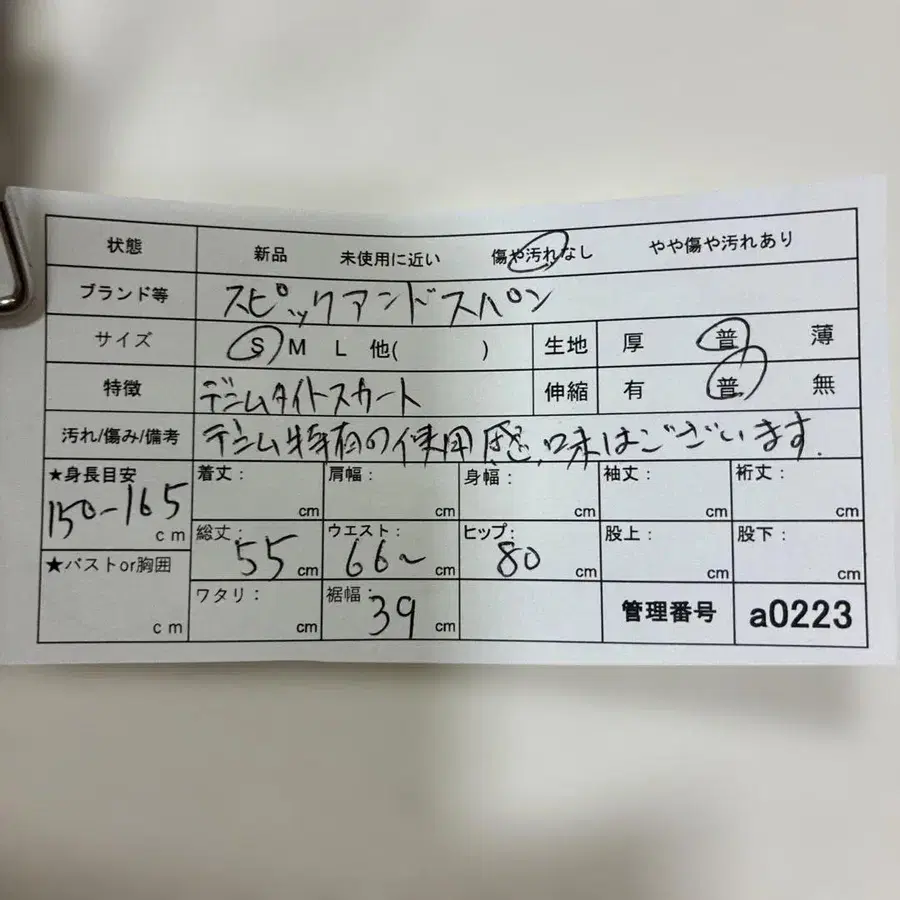 状態 新品 未使用に近い 傷や汚れなし やや傷や汚れあり
ブランド等 スピックアンドスパン
サイズ S M L 他( ) 生地 厚 普 薄
特徴 デニムタイトスカート 伸縮 有 普 無
汚れ/傷み/備考 デニム特有の使用感、味はございます.
★身長目安 150-165 cm 着丈: cm 肩幅: cm 身幅: cm 袖丈: cm 裄丈: cm
総丈: 55 cm ウエスト: 66~ cm ヒップ: 80 cm 股上: cm 股下: cm
★バストor胸囲 cm ワタリ: cm 裾幅: 39 cm 管理番号 a0223